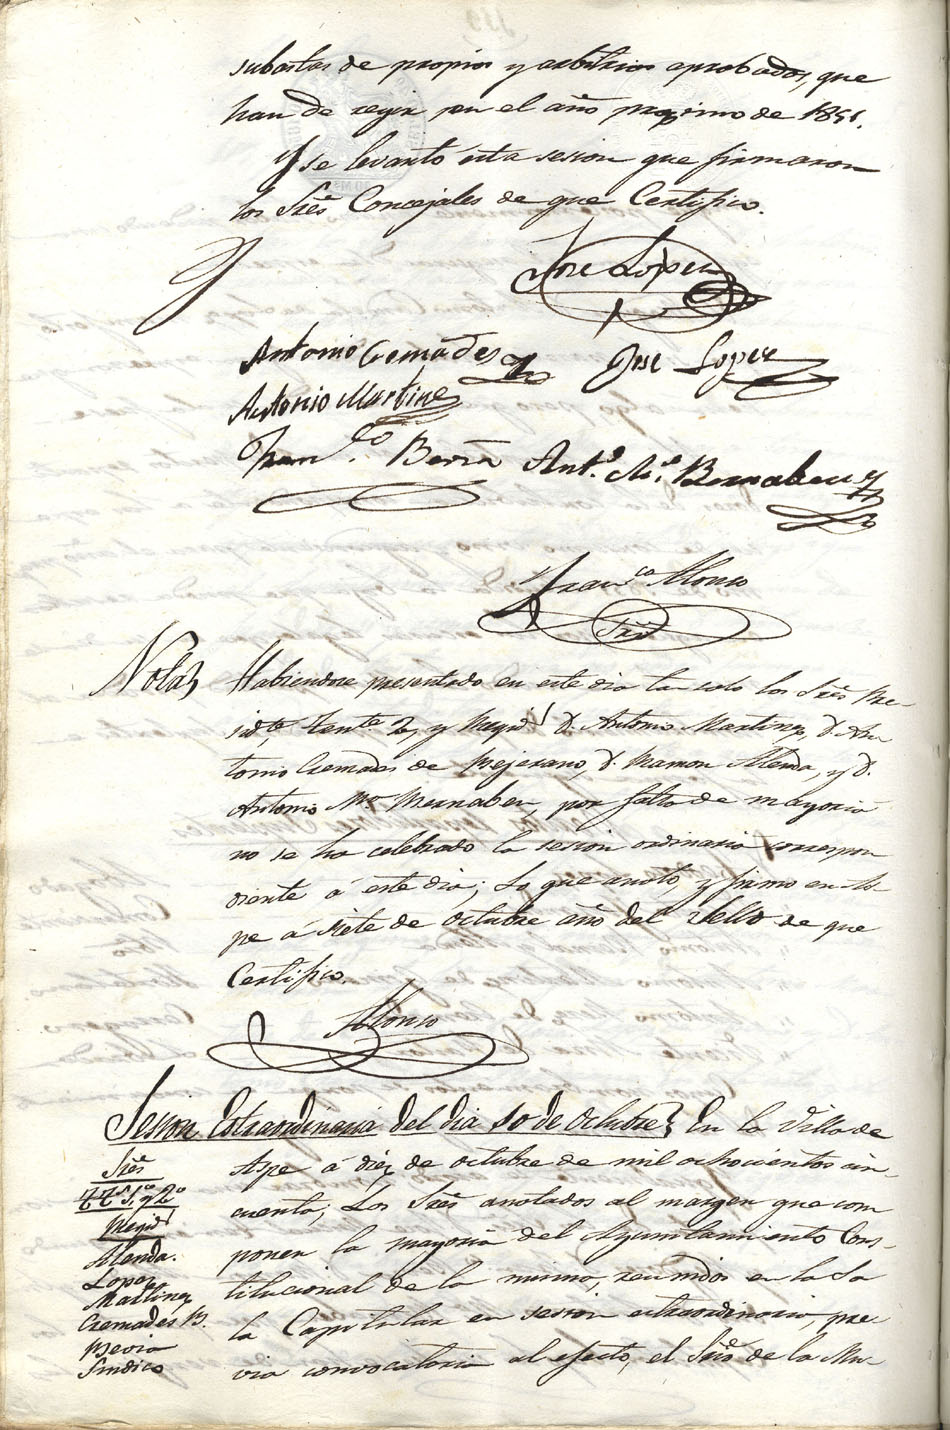 subastas de propios y arbitrios aprobados, que
han de regir en el año proximo de 1851.
Y se levantó esta sesion que firmaron
los Sres Concejales de que Certifico.
Jose Lopez
Antonio Cremades
Jose Lopez
Antonio Martinez
Franco. Beria
Anto. Ma. Bernabeu
Franco Alonso
Srio
Nota
Habiendose presentado en este dia tan solo los Sres Pre-
sidte, Tente 2o, y Regid D. Antonio Martinez, D. An
tonio Cremades de Pejerano, D. Ramon Alenda, y D.
Antonio Ma Bernabeu, por falta de mayoria
no se ha celebrado la sesion ordinaria correspon
diente á este dia; Lo que anoto y firmo en As-
pe á siete de octubre año del Sello de que
Certifico.
Alonso
Sesion Estraordinaria del dia 10 de octubre
En la Villa de
Aspe á diez de octubre de mil ochocientos cin-
cuenta; Los Sres anotados al margen que com
ponen la mayoria del Ayuntamiento Cons-
titucional de la misma, reunidos en la Sa
la Capitular en sesion estraordinaria, pre-
via convocatoria al efecto, el Srio de la Mu-
Sres
TTes 1o y 2o
Regid
Alenda.
Lopez
Martinez
Cremades B.
Beria
Sindico